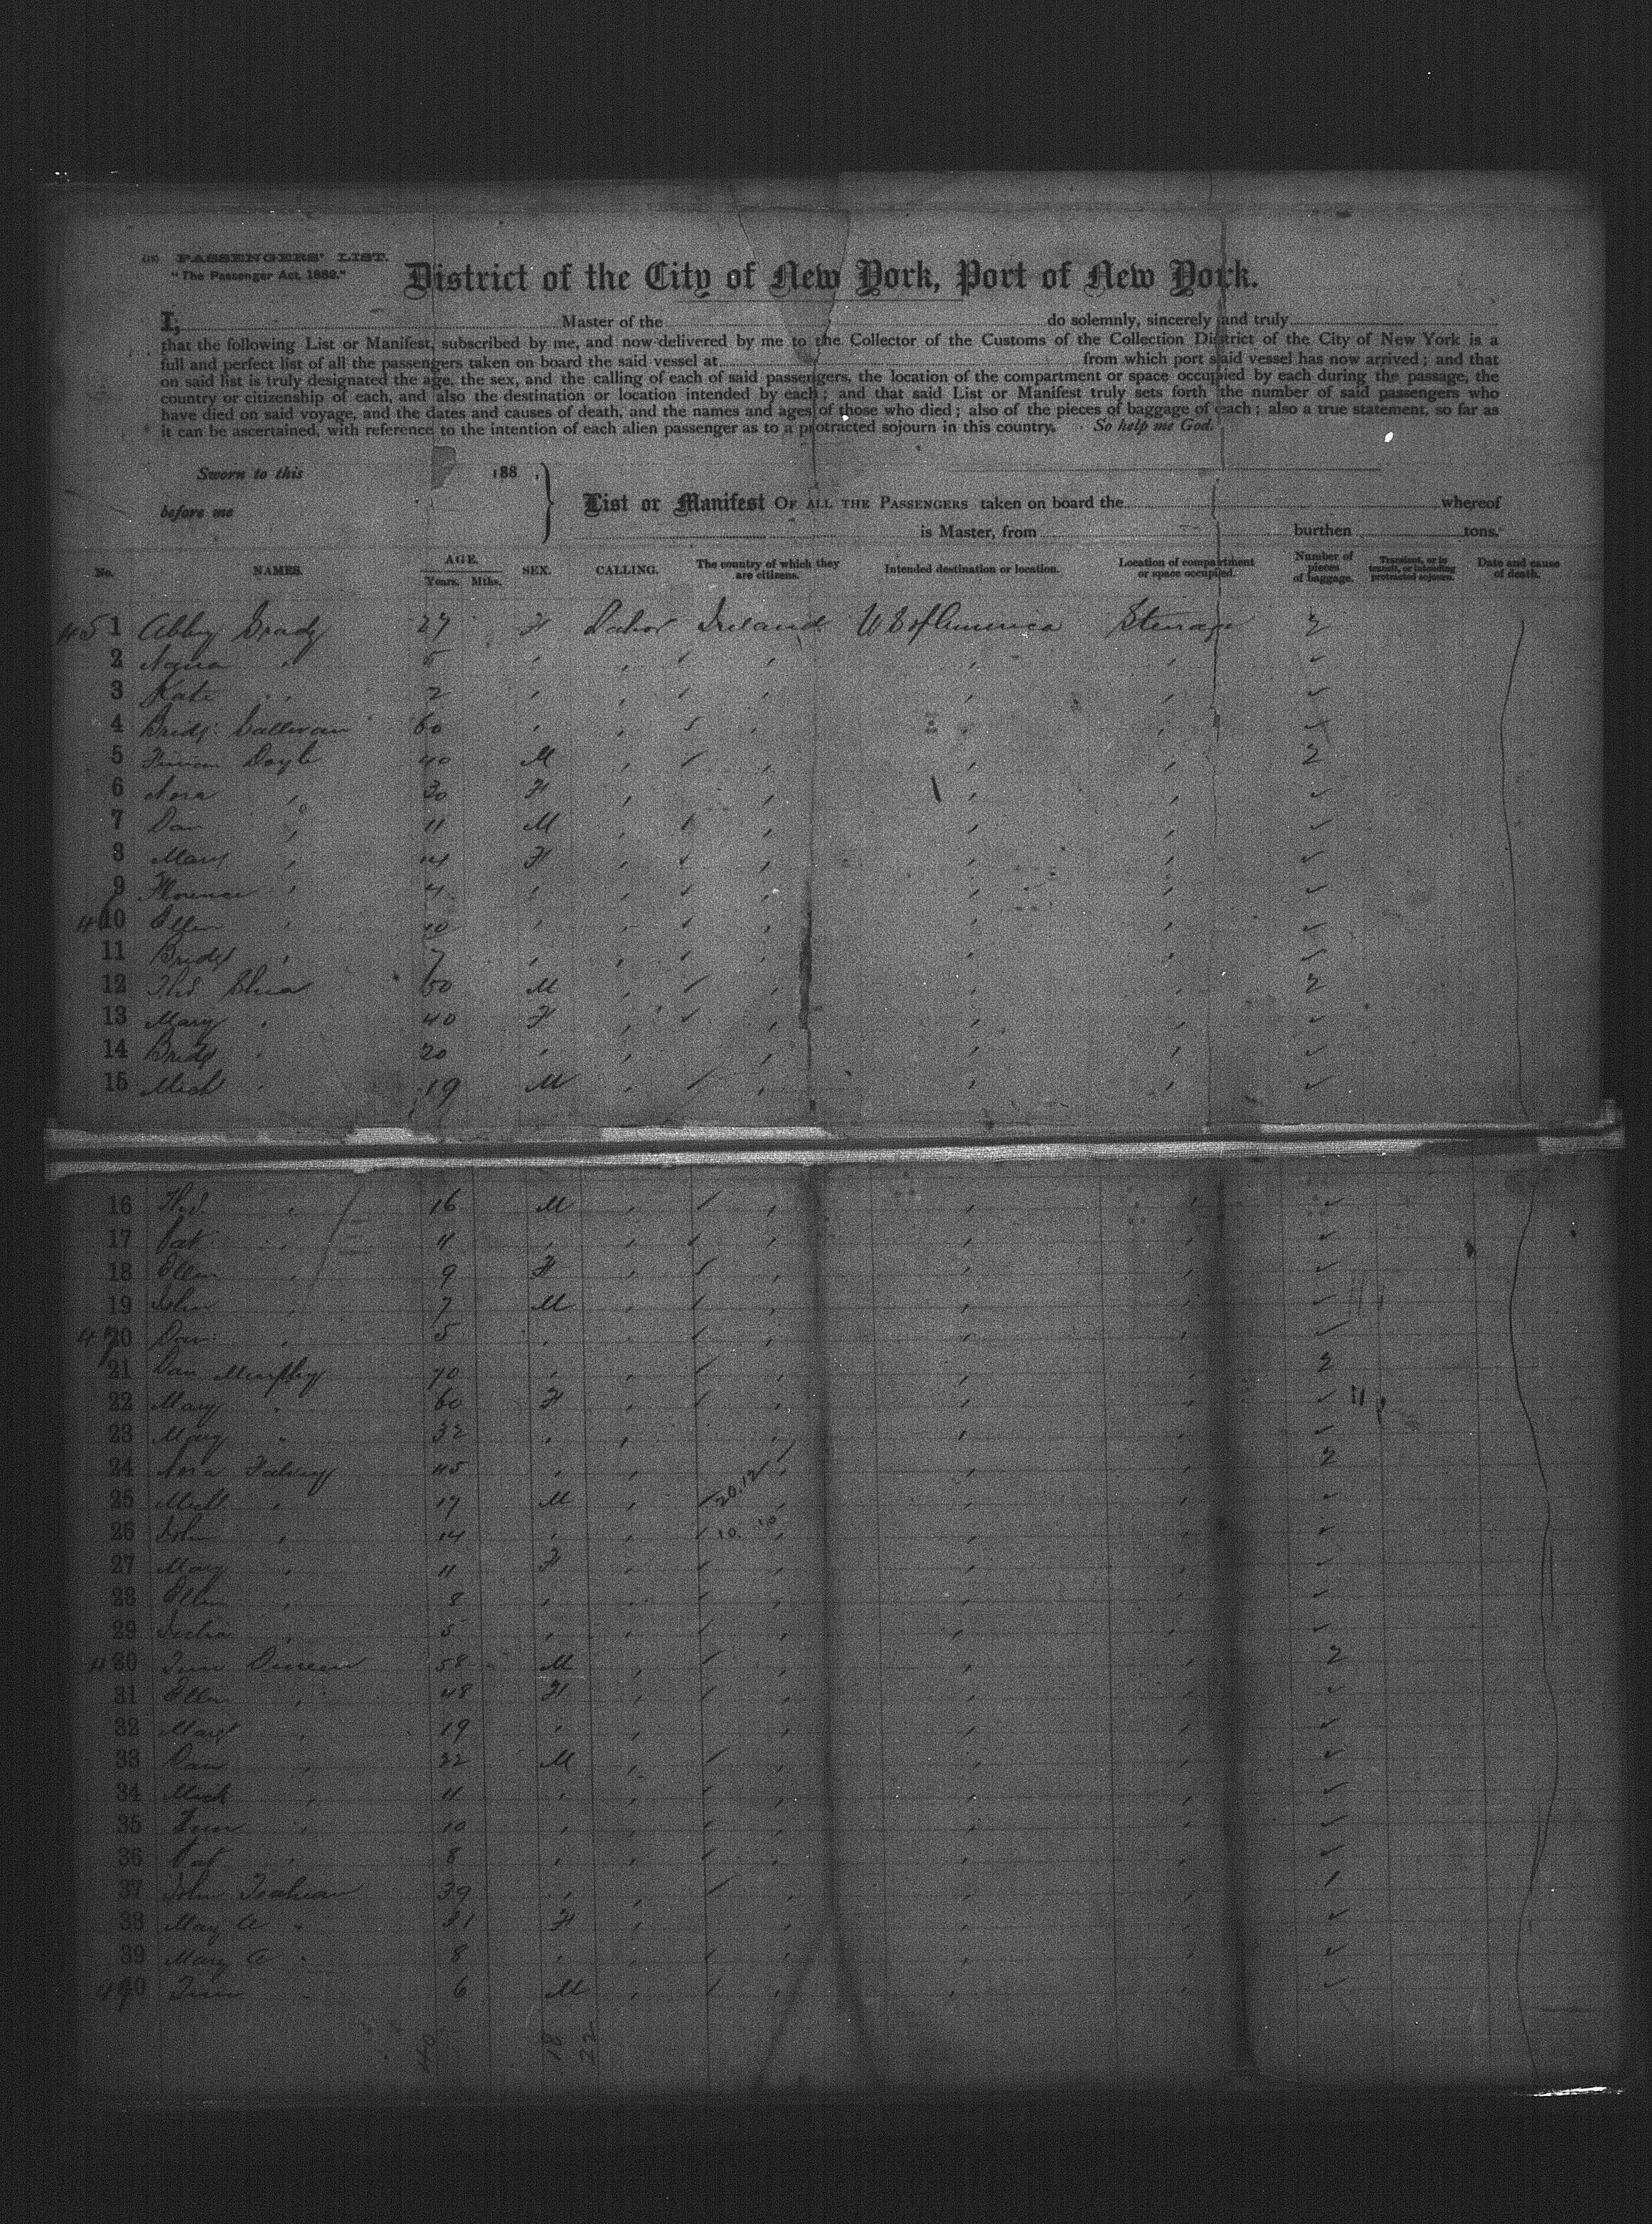 (18) PASSENGERS' LIST.
"The Passenger Act, 1882."
District of the City of New York, Port of New York.
I, Master of the do solemnly, sincerely and truly
that the following List or Manifest, subscribed by me, and now delivered by me to the Collector of the Customs of the Collection District of the City of New York is a
full and perfect list of all the passengers taken on board the said vessel at from which port said vessel has now arrived; and that
on said list is truly designated the age, the sex, and the calling of each of said passengers, the location of the compartment or space occupied by each during the passage, the
country or citizenship of each, and also the destination or location intended by each; and that said List or Manifest truly sets forth the number of said passengers who
have died on said voyage, and the dates and causes of death, and the names and ages of those who died; also of the pieces of baggage of each; also a true statement, so far as
it can be ascertained, with reference to the intention of each alien passenger as to a protracted sojourn in this country. So help me God.
Sworn to this 188 .
before me
List or Manifest OF ALL THE PASSENGERS taken on board the whereof
is Master, from burthen tons.
No. NAMES. AGE. Years. Mths. SEX. CALLING. The country of which they are citizens. Intended destination or location. Location of compartment or space occupied. Number of pieces of baggage. Transient, or in transit, or intending protracted sojourn. Date and cause of death.
1 Abby Grady 27 F Labor Ireland U S of America Steerage 2
2 " 5
3 Kate " 2
4 Bridgt Sullivan 60
5 Doyle 40 M 2
6 Nora " 30 F
7 Dan " 11 M
8 Mary " 14 F
9 Florence " 4
10 Ellen " 10
11 Bridgt " 7
12 Shea 50 M 2
13 Mary " 40 F
14 Bridgt " 20
15 Mich " 19 M
16 " 16 M
17 Pat " 11
18 Ellen " 9 F
19 John " 7 M
20 Dan " 5
21 Dan Murphy 70 2
22 Mary " 60 F
23 Mary " 32
24 Nora Falvey 45 2
25 Michl " 17 M
26 John " 14
27 Mary " 11 F
28 Ellen " 8
29 " 5
30 Tim 58 M 2
31 Ellen " 48 F
32 Margt " 19
33 Dan " 22 M
34 Mick " 11
35 " 10
36 Pat " 8
37 John 39 1
38 Mary A " 31 F
39 Mary A " 8
40 Tim " 6 M
40 18 22